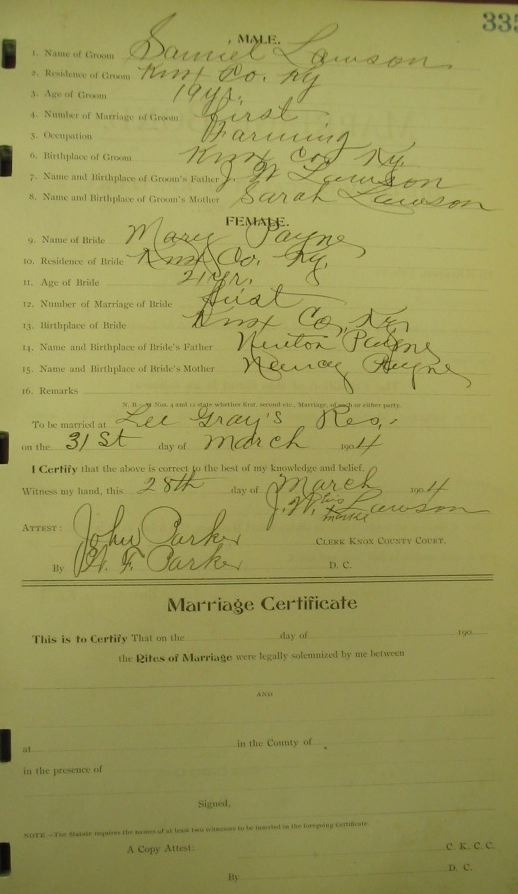 335
MALE.
1. Name of Groom Samuel Lawson
2. Residence of Groom Knx Co. Ky
3. Age of Groom 19 yr.
4. Number of Marriage of Groom first
5. Occupation Farming
6. Birthplace of Groom Knx Co. Ky.
7. Name and Birthplace of Groom's Father J W Lawson
8. Name and Birthplace of Groom's Mother Sarah Lawson
FEMALE.
9. Name of Bride Mary Payne
10. Residence of Bride Knx Co. Ky.
11. Age of Bride 21 yr.
12. Number of Marriage of Bride first
13. Birthplace of Bride Knx Co. Ky.
14. Name and Birthplace of Bride's Father Newton Payne
15. Name and Birthplace of Bride's Mother Nancy Payne
16. Remarks
N. B.—At Nos. 4 and 12 state whether first, second etc., Marriage, of each or either party.
To be married at Lee Gray's Res.
on the 31st day of March 1904
I Certify that the above is correct to the best of my knowledge and belief.
Witness my hand, this 28th day of March 1904
J. W. his mark Lawson
ATTEST: John Parker CLERK KNOX COUNTY COURT.
By W. F. Parker D. C.
Marriage Certificate
This is to Certify That on the day of 190
the Rites of Marriage were legally solemnized by me between
AND
at in the County of
in the presence of
Signed,
NOTE.—The Statute requires the names of at least two witnesses to be inserted in the foregoing Certificate.
A Copy Attest: C. K. C. C.
By D. C.